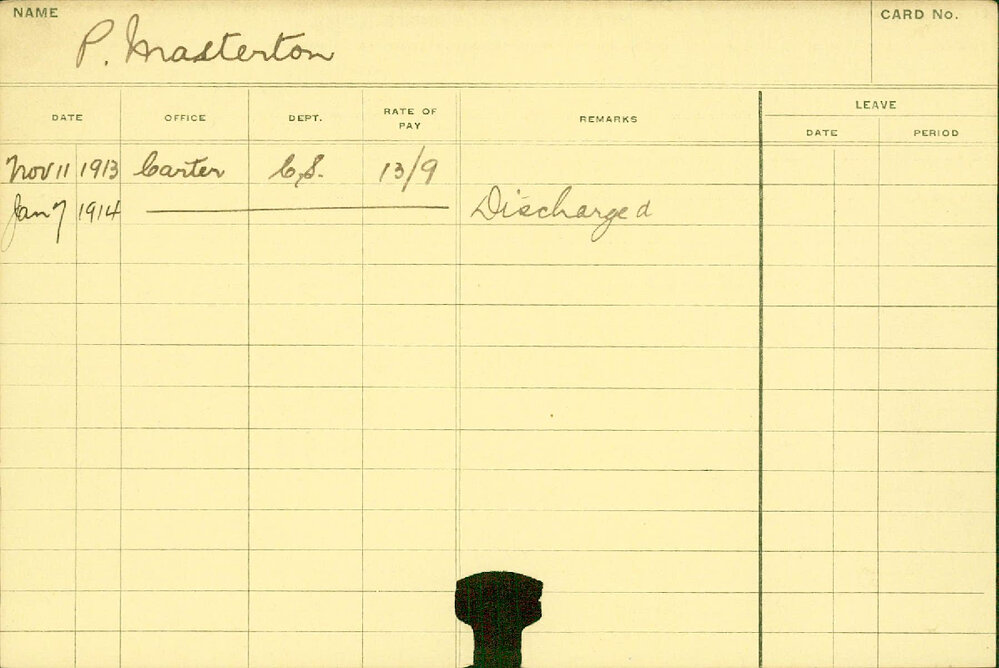 NAME CARD No.
P. Masterton
DATE OFFICE DEPT. RATE OF PAY REMARKS LEAVE
DATE PERIOD
Nov 11 1913 Carter C.S. 13/9
Jan 7 1914 Discharged